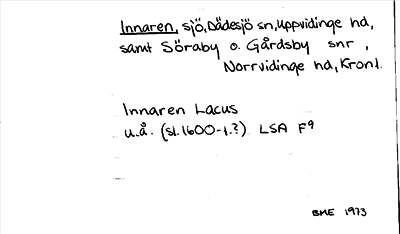 Innaren, sjö, Dädesjö sn, Uppvidinge hd,
samt Söraby o. Gårdsby snr,
Norrvidinge hd, Kronl.
Innaren Lacus
u.å. (sl. 1600-t.?) LSA F9
BME 1973